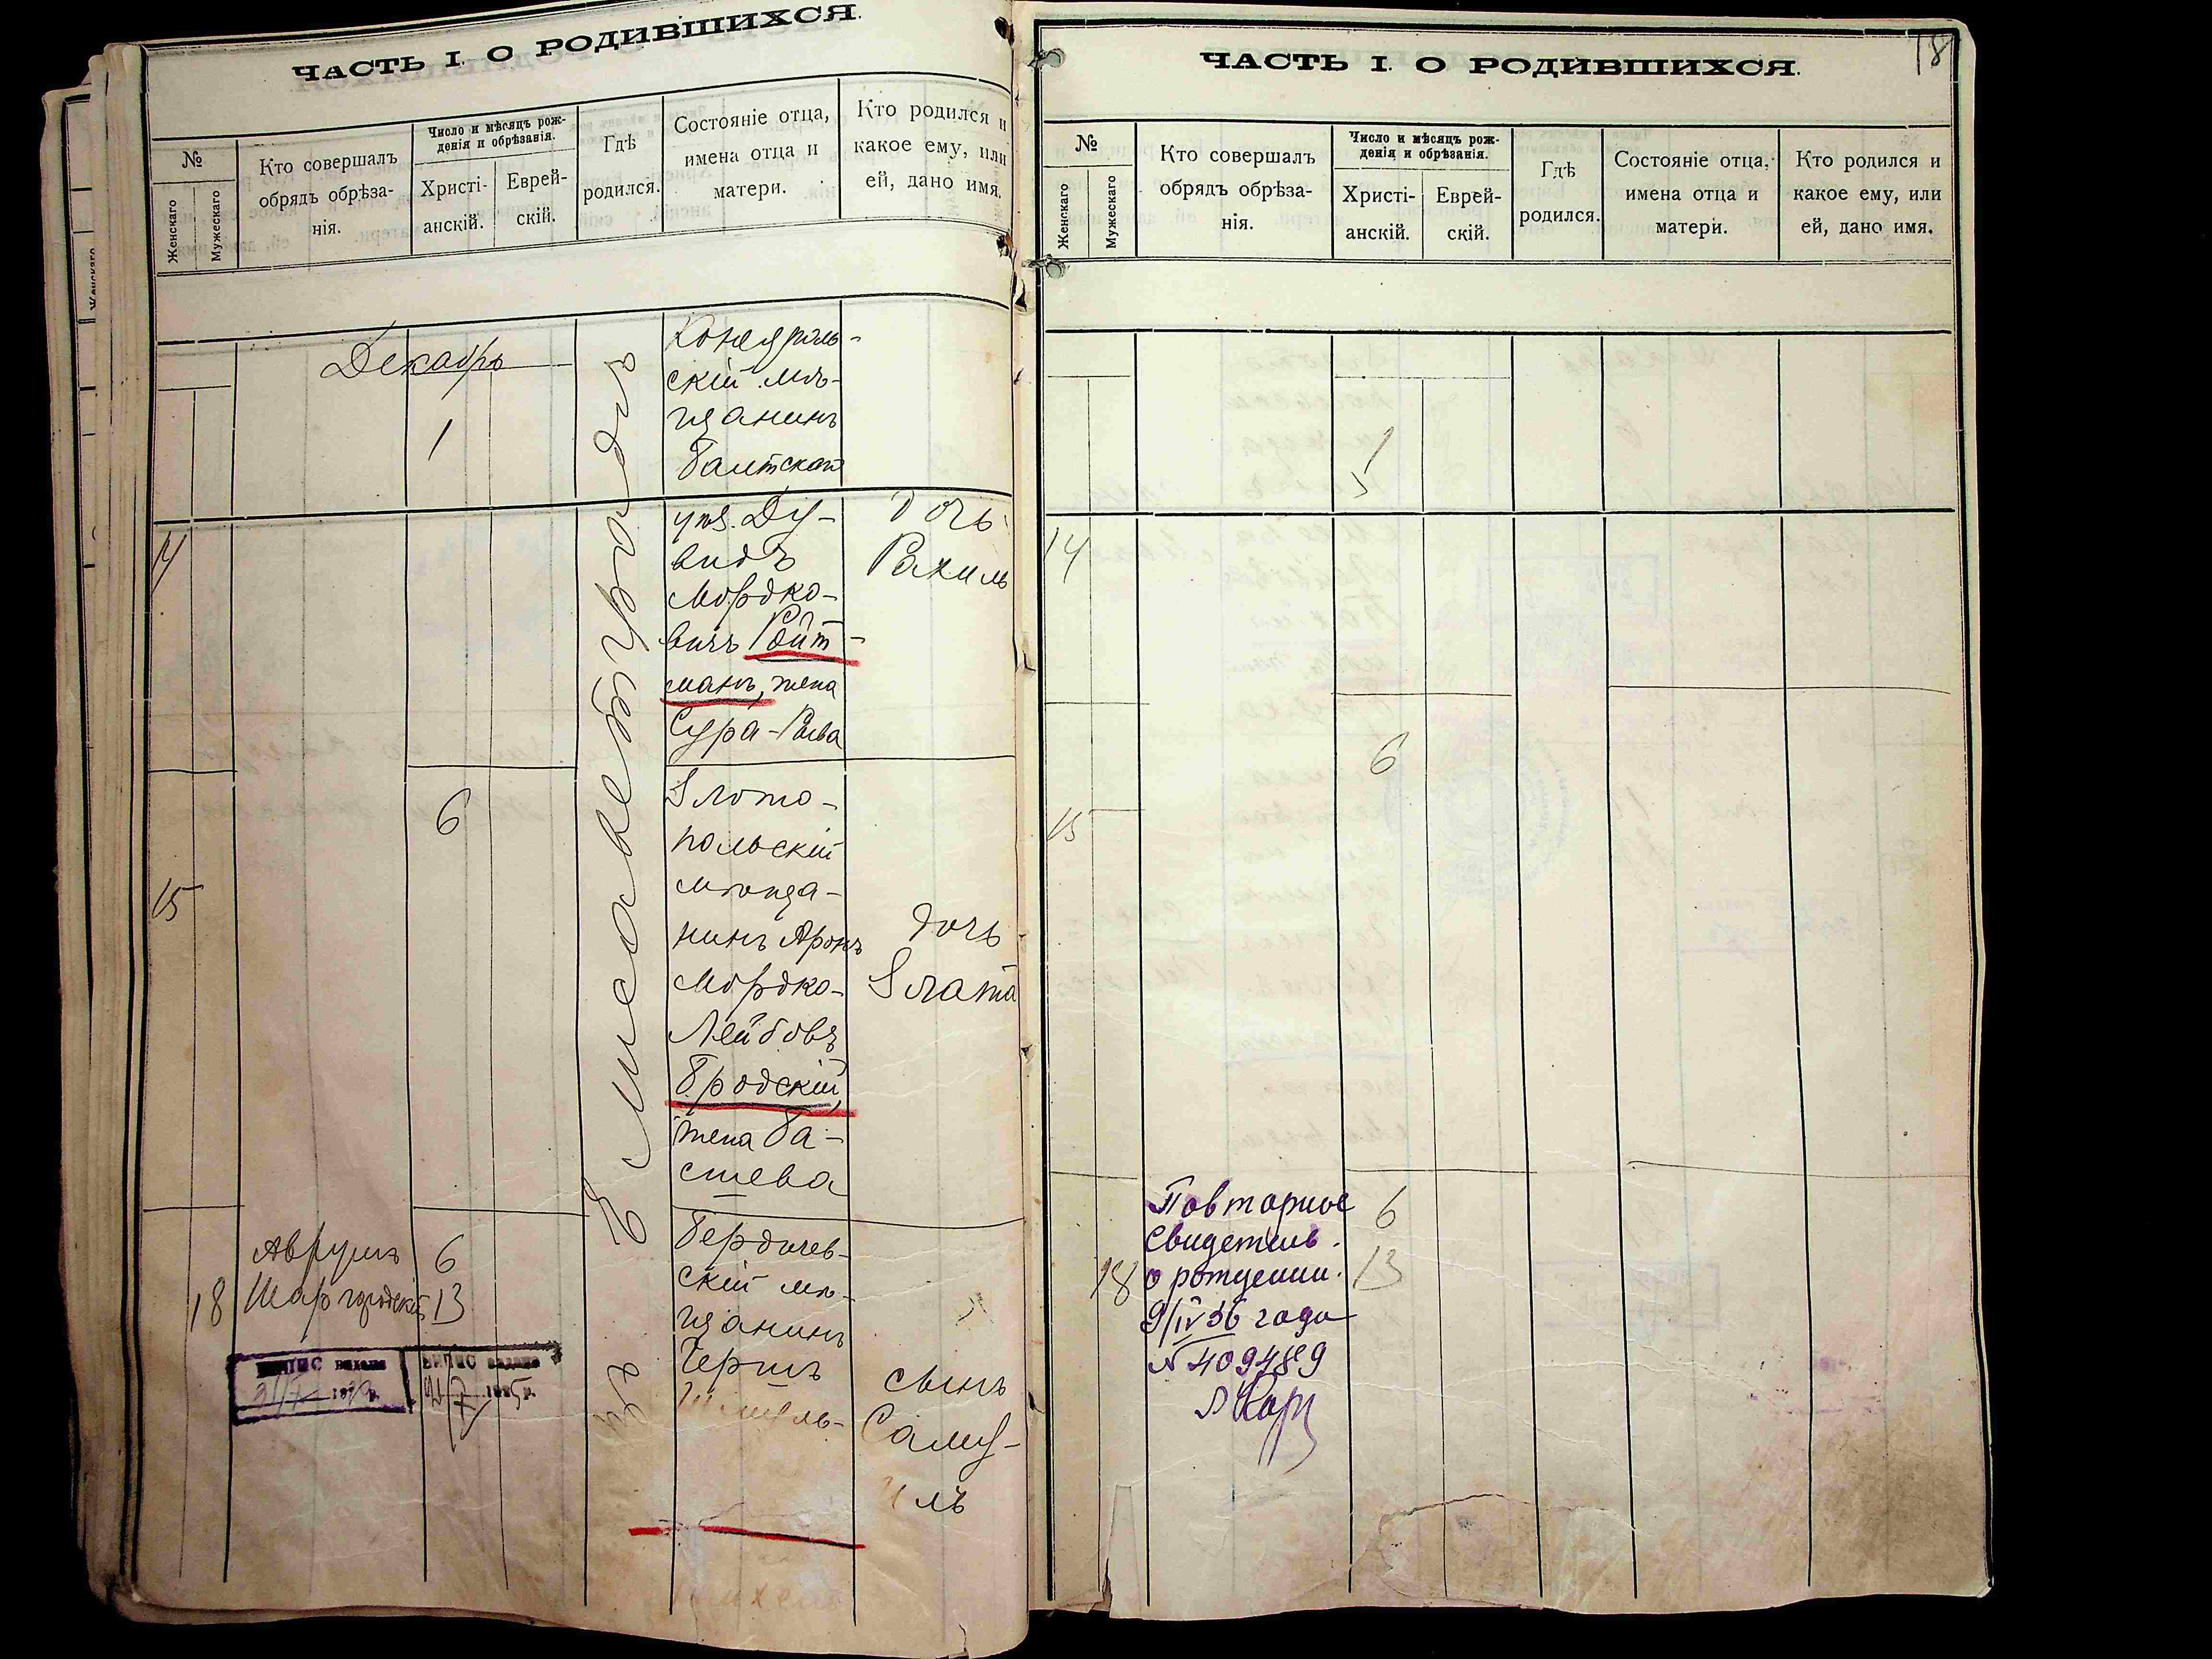 ЧАСТЬ I. О РОДИВШИХСЯ.
№
Женскаго
Мужескаго
Кто совершалъ
обрядъ обрѣза-
нія.
Число и мѣсяцъ рож-
денія и обрѣзанія.
Христі-
анскій.
Еврей-
скій.
Гдѣ
родился.
Состояніе отца,
имена отца и
матери.
Кто родился и
какое ему, или
ей, дано имя.
Декабрь
1
Въ Елисаветградѣ
скій мѣ-
щанинъ
Балтскаго
14
уѣз. Ду-
видъ
Мордко-
вичъ Ройт-
манъ, жена
Сура-Рива
Дочь
Рахиль
15
6
Злото-
польскій
мѣща-
нинъ Аронъ
Мордко-
Лейбовъ
Бродскій,
жена Ба-
сшева
дочь
Злата
18
Аврумъ
Шаргородскій
6
13
Бердичев-
скій мѣ-
щанинъ
Гершъ
Шмуль-
сынъ
Саму-
илъ
ВИПИС видано
ВИПИС видано
18
ЧАСТЬ I. О РОДИВШИХСЯ.
№
Женскаго
Мужескаго
Кто совершалъ
обрядъ обрѣза-
нія.
Число и мѣсяцъ рож-
денія и обрѣзанія.
Христі-
анскій.
Еврей-
скій.
Гдѣ
родился.
Состояніе отца,
имена отца и
матери.
Кто родился и
какое ему, или
ей, дано имя.
1
14
15
6
18
Повторное
свидетельв.
о рождении.
9/IV 36 года
N 409489
6
13